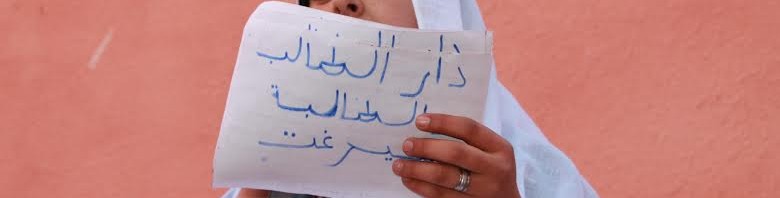 دار الطالب
الطالبة